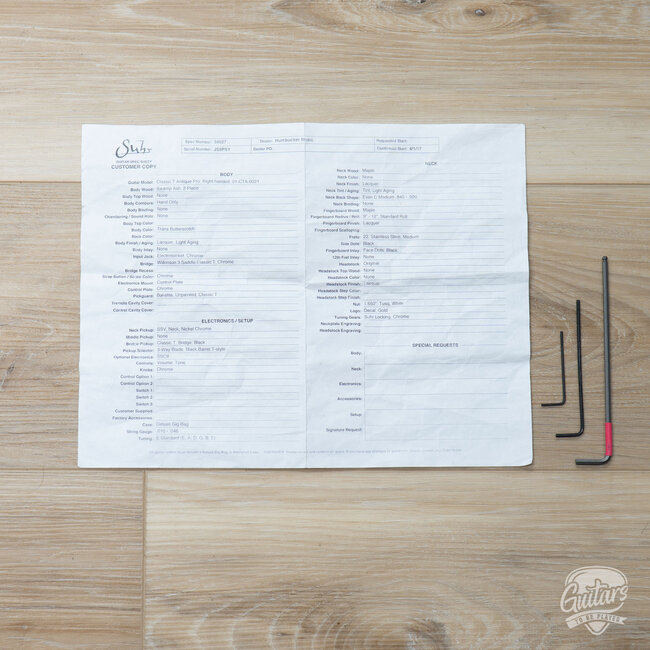 Suhr
GUITAR SPEC SHEET
CUSTOMER COPY
Spec Number:
Serial Number:
Dealer:
Dealer PO:
Requested Start:
Confirmed Start: 8/1/17
BODY
Guitar Model: Classic T Antique Pro, Right handed, 01-CTA-0021
Body Wood: Swamp Ash, 2 Piece
Body Top Wood: None
Body Contours: Hand Only
Body Binding: None
Chambering / Sound Hole: None
Body Top Color:
Body Color: Trans Butterscotch
Back Color:
Body Finish / Aging: Lacquer, Light Aging
Body Inlay: None
Input Jack: Electrosocket, Chrome
Bridge: Wilkinson 3 Saddle Classic T, Chrome
Bridge Recess:
Strap Button / Screw Color: Chrome
Electronics Mount: Control Plate
Control Plate: Chrome
Pickguard: Bakelite, Unpainted, Classic T
Tremolo Cavity Cover:
Control Cavity Cover:
ELECTRONICS / SETUP
Neck Pickup: SSV, Neck, Nickel Chrome
Middle Pickup: None
Bridge Pickup: Classic T, Bridge, Black
Pickup Selector: 3-Way Blade, Black Barrel T-style
Optional Electronics: SSCII
Controls: Volume, Tone
Knobs: Chrome
Control Option 1:
Control Option 2:
Switch 1:
Switch 2:
Switch 3:
Customer Supplied:
Factory Accessories:
Case: Deluxe Gig Bag
String Gauge: .010 - .046
Tuning: E Standard (E, A, D, G, B, E)
NECK
Neck Wood: Maple
Neck Color: None
Neck Finish: Lacquer
Neck Tint / Aging: Tint, Light Aging
Neck Back Shape: Even C Medium, .840 - .900
Neck Binding: None
Fingerboard Wood: Maple
Fingerboard Radius / Roll: 9" - 12", Standard Roll
Fingerboard Finish: Lacquer
Fingerboard Scalloping:
Frets: 22, Stainless Steel, Medium
Side Dots: Black
Fingerboard Inlay: Face Dots, Black
12th Fret Inlay: None
Headstock: Original
Headstock Top Wood: None
Headstock Color: None
Headstock Finish: Lacquer
Headstock Step Color:
Headstock Step Finish:
Nut: 1.650", Tusq, White
Logo: Decal, Gold
Tuning Gears: Suhr Locking, Chrome
Neckplate Engraving:
Headstock Engraving:
SPECIAL REQUESTS
Body:
Neck:
Electronics:
Accessories:
Setup:
Signature Request:
Guitars
TO BE PLAYED